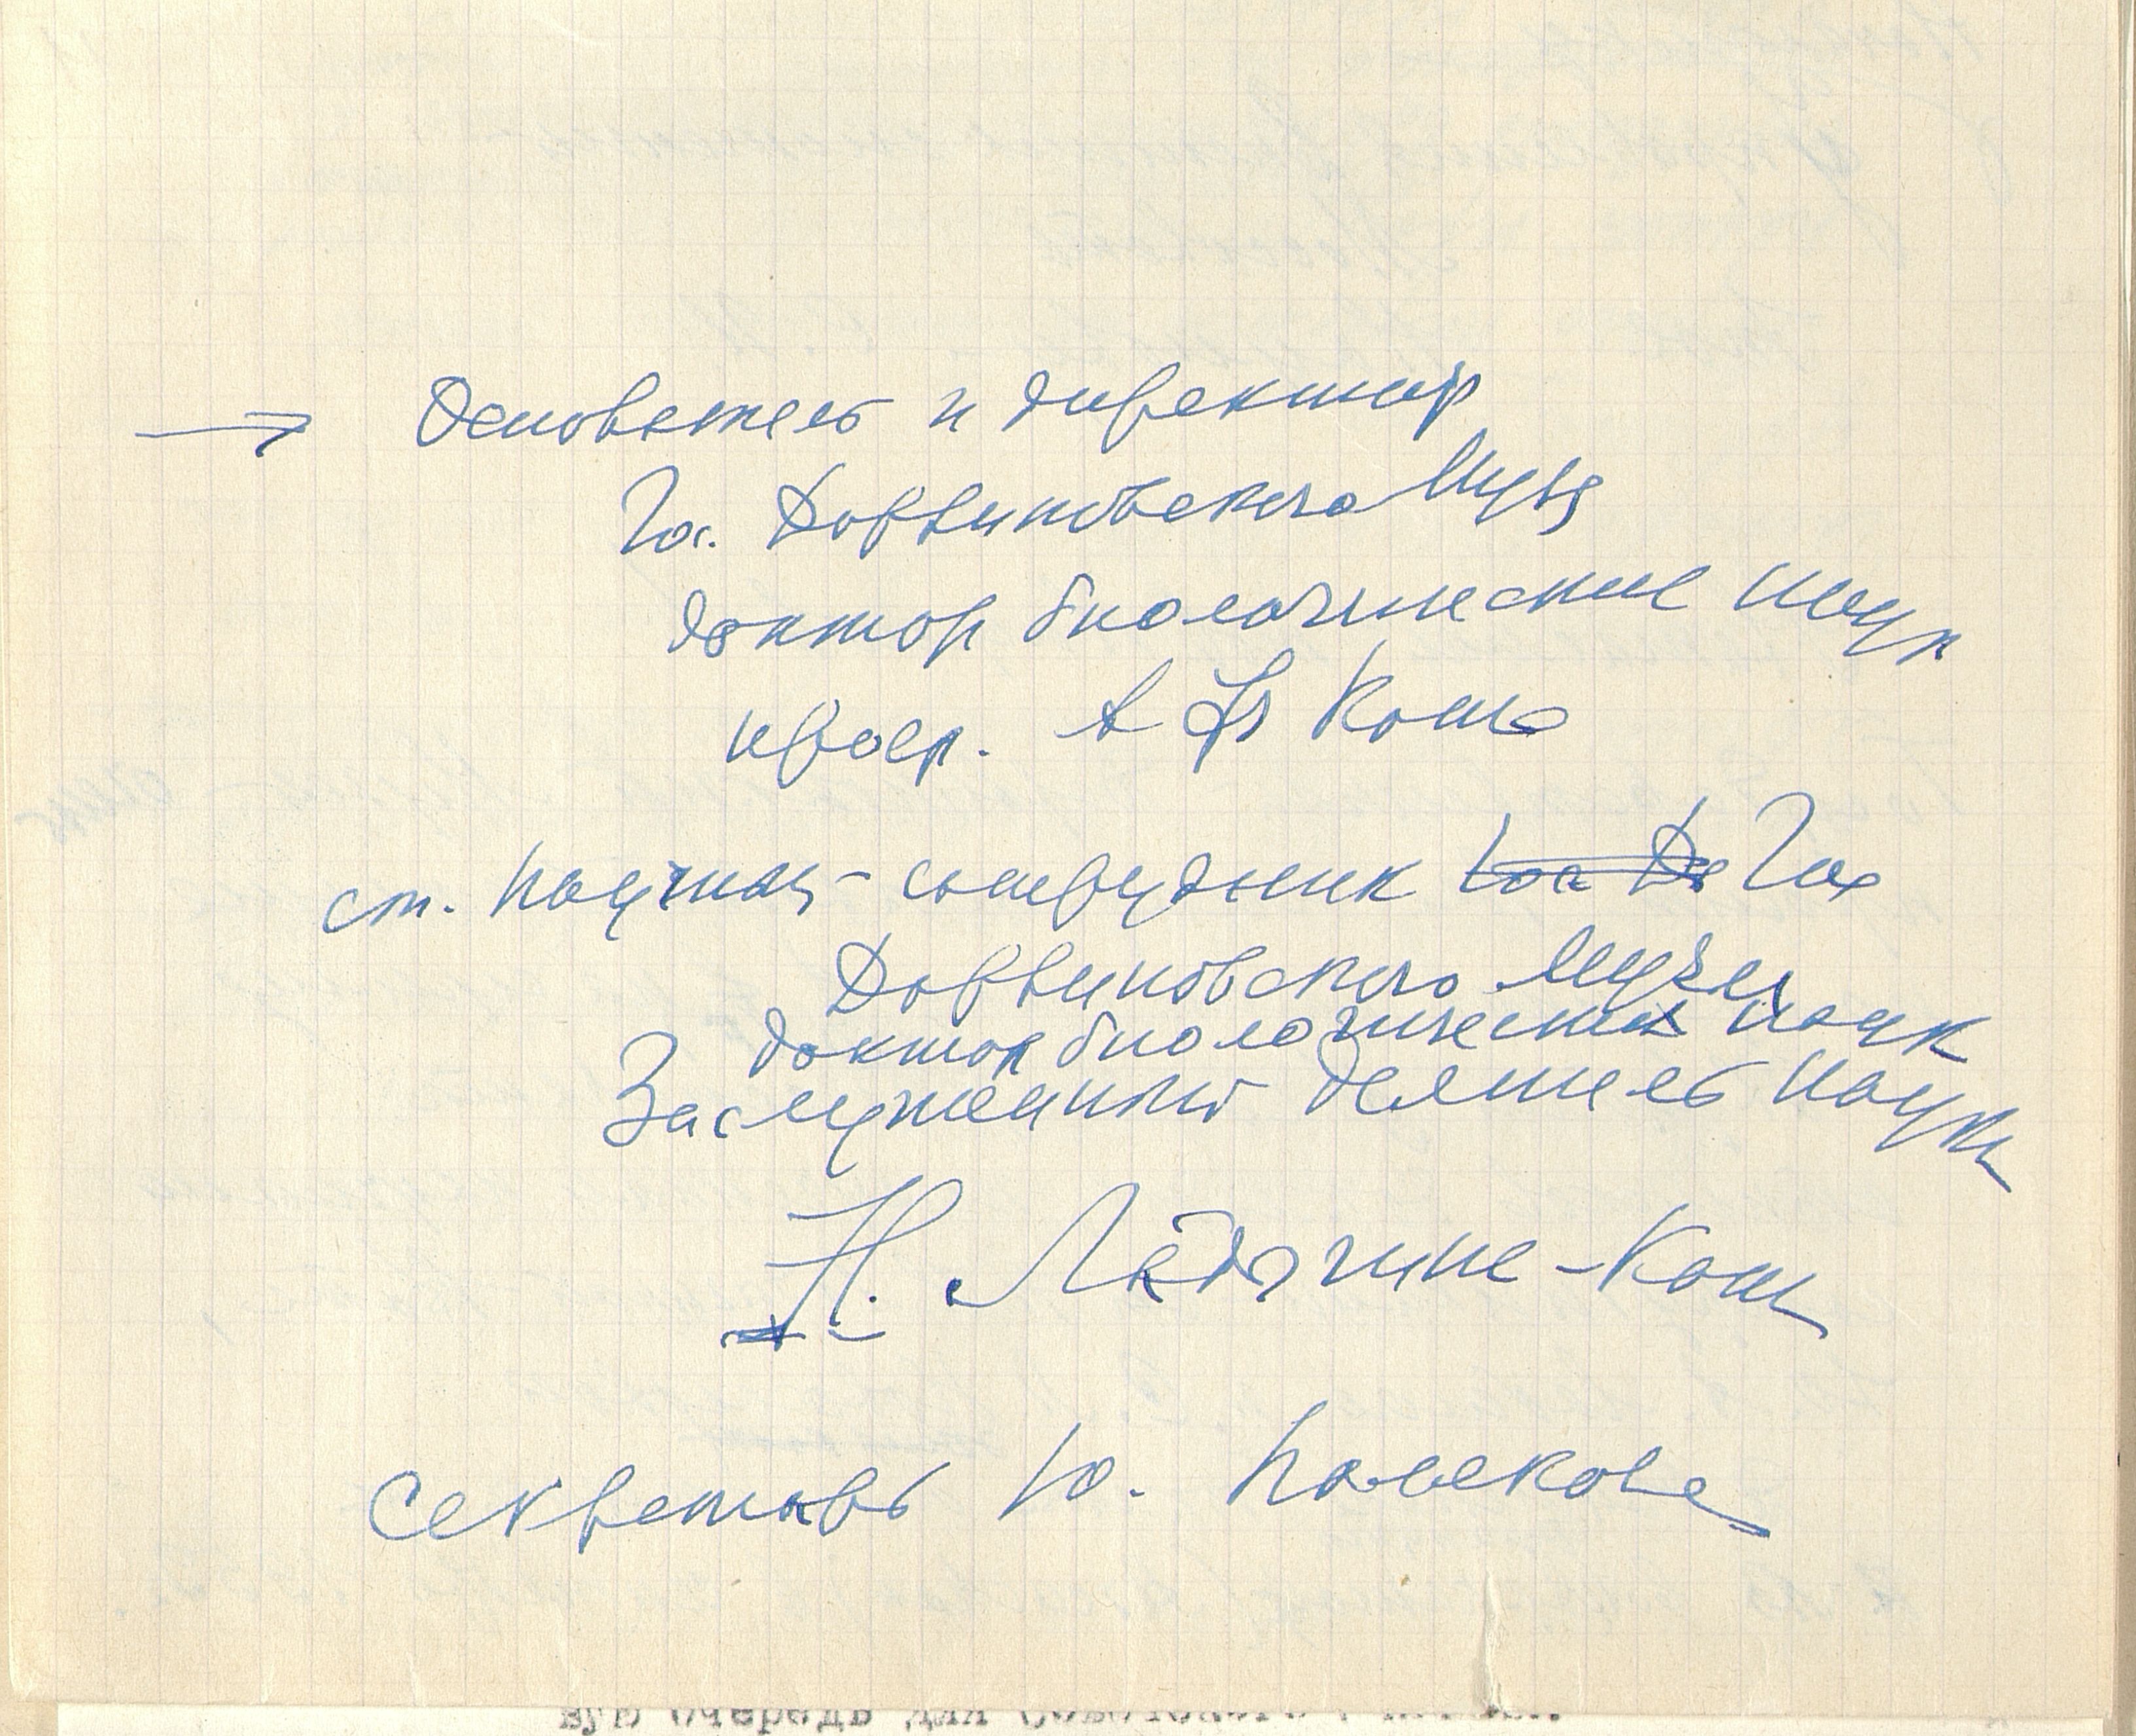 → Основатель и директор
Гос. Дарвиновского Муз
доктор биологических наук
проф. А Ф Котс
ст. научный сотрудник Гос Да Гос
Дарвиновского Музея
доктор биологических наук
Заслуженный деятель науки
Н. Ладыгина-Котс
Секретарь Ю. Полякова
вую очередь для Советского